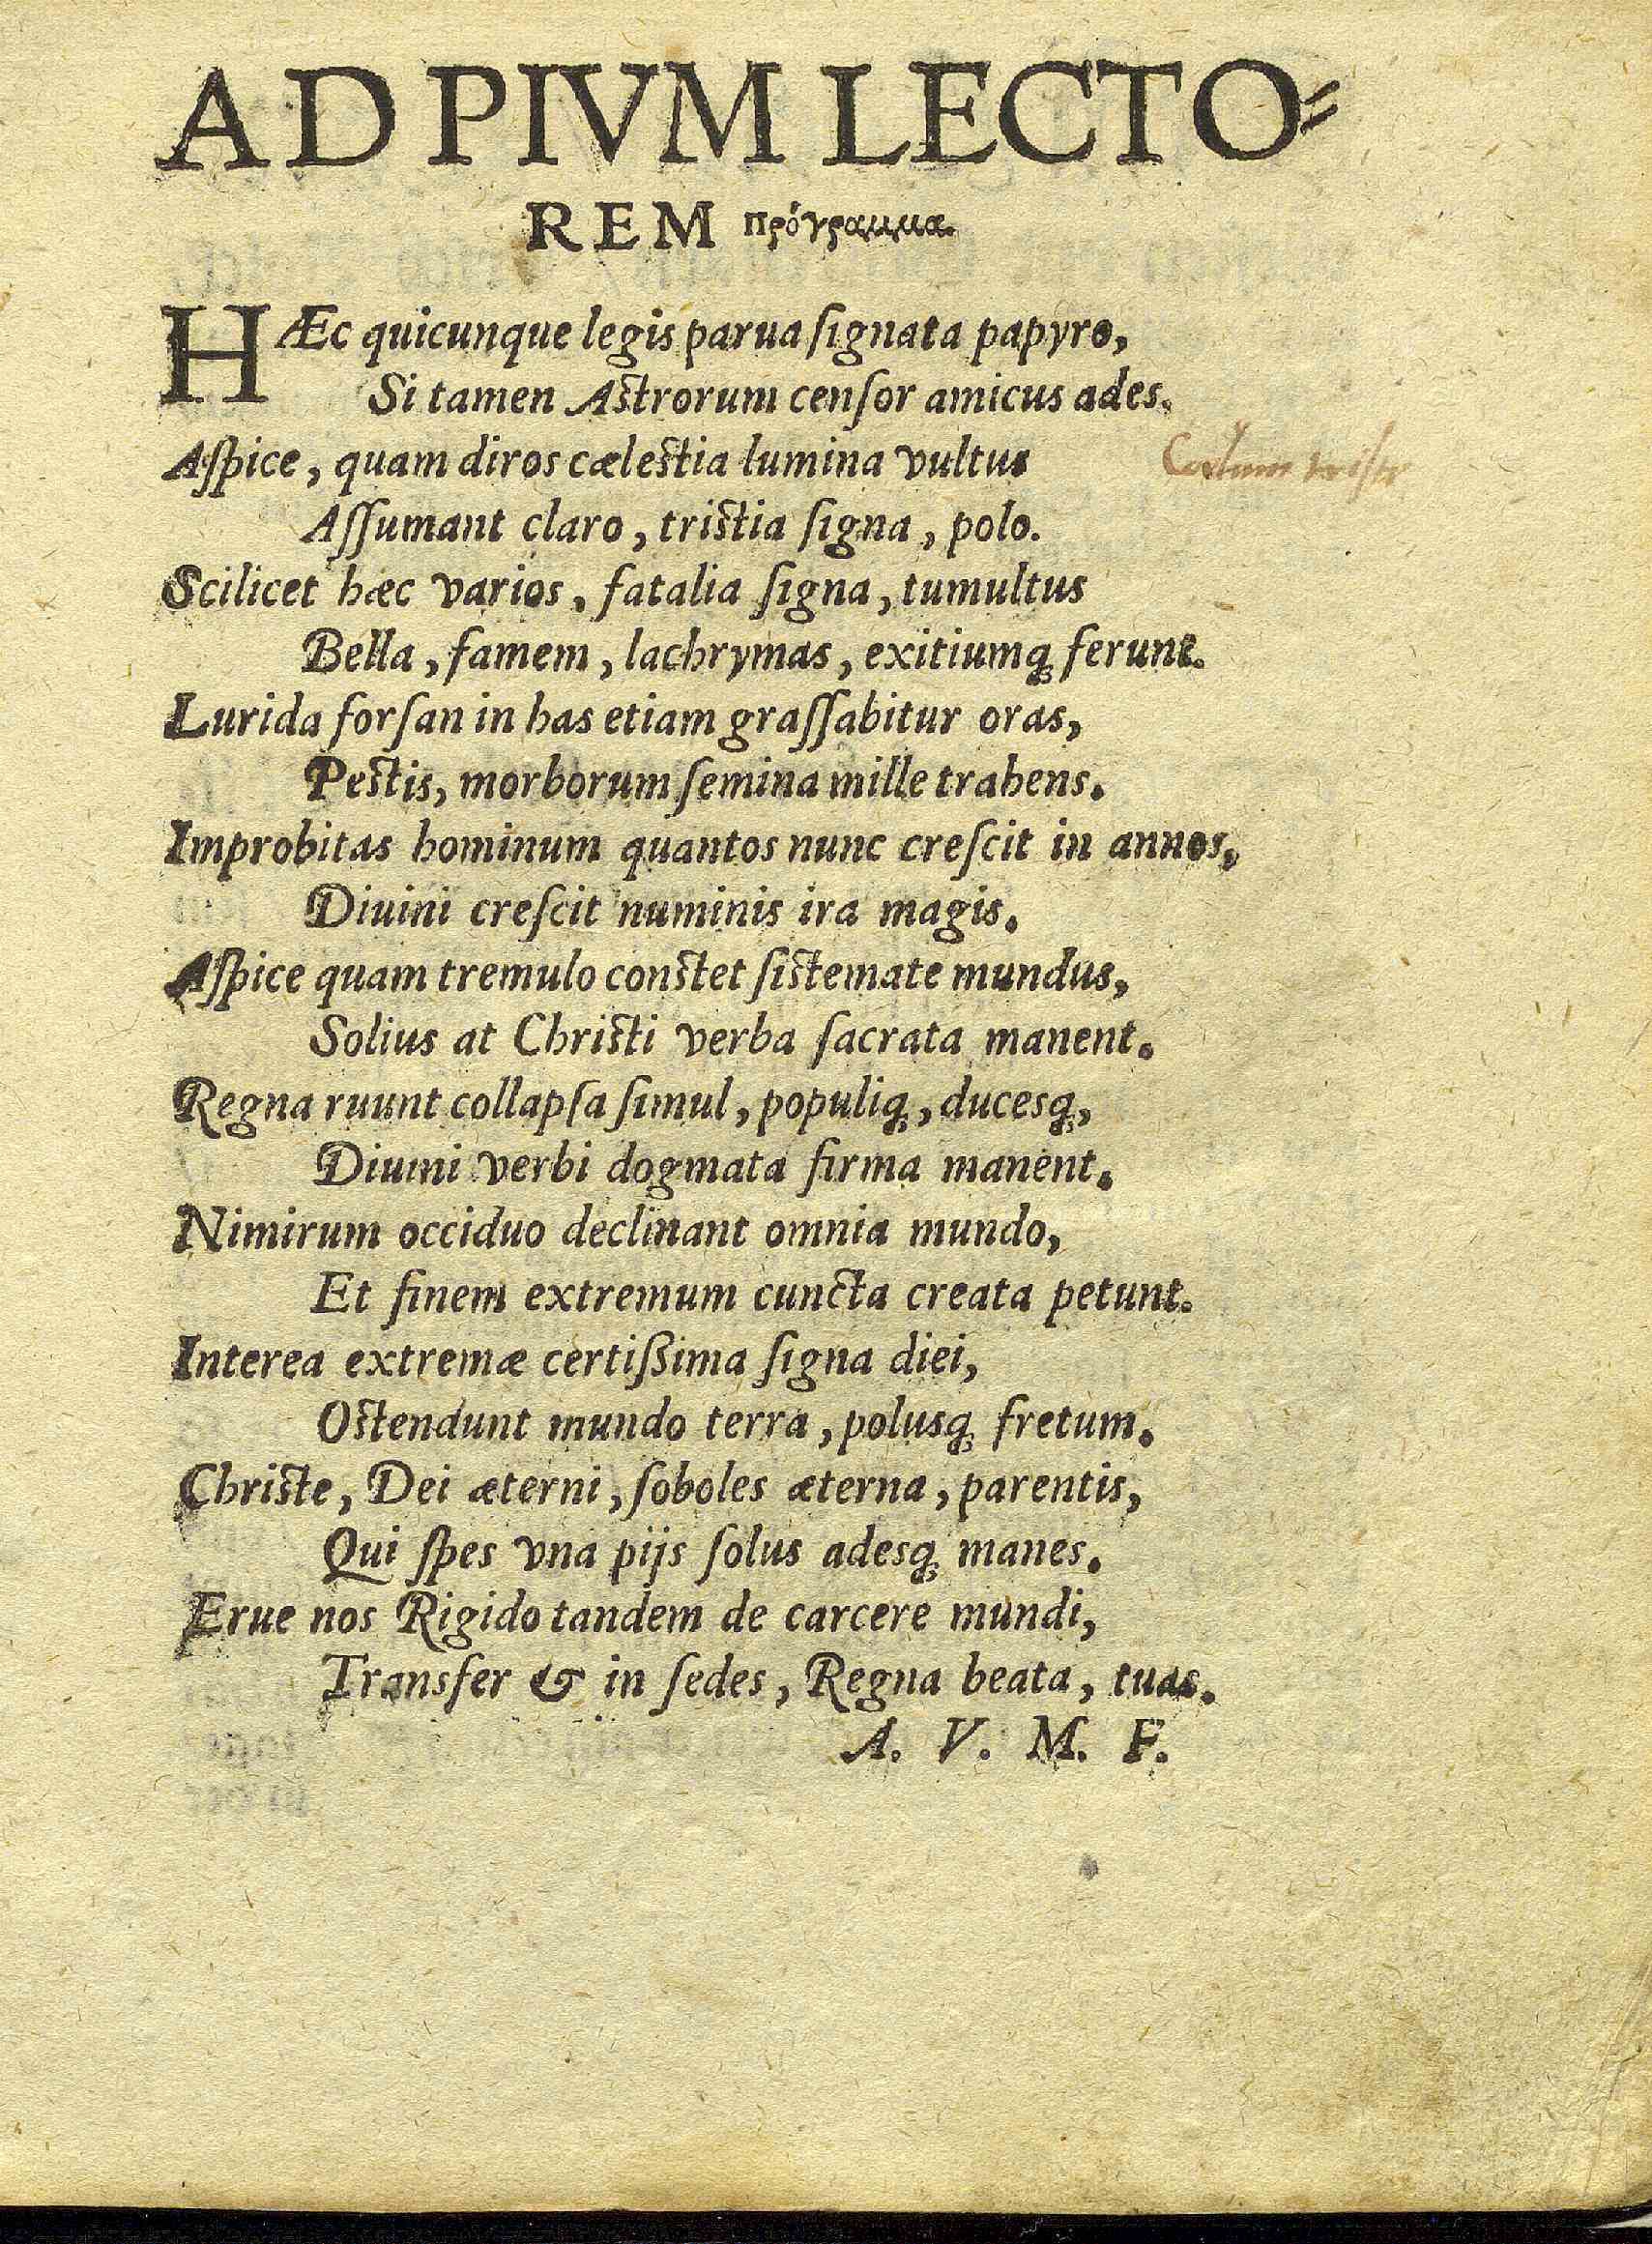 AD PIVM LECTO=
REM πρόγραμμα.
HÆc quicunque legis parua ſignata papyro,
Si tamen Aſtrorum cenſor amicus ades.
Aſpice, quam diros cæleſtia lumina vultus
Coelum triste
Aſſumant claro, triſtia ſigna, polo.
Scilicet hæc varios, fatalia ſigna, tumultus
Bella, famem, lachrymas, exitiumq́; ferunt.
Lurida forſan in has etiam graſſabitur oras,
Peſtis, morborum ſemina mille trahens.
Improbitas hominum quantos nunc creſcit in annos,
Diuini creſcit numinis ira magis.
Aſpice quam tremulo conſtet ſiſtemate mundus,
Solius at Chriſti verba ſacrata manent.
Regna ruunt collapſa ſimul, populiq;, ducesq;,
Diuini verbi dogmata firma manent.
Nimirum occiduo declinant omnia mundo,
Et finem extremum cuncta creata petunt.
Interea extremæ certißima ſigna diei,
Oſtendunt mundo terra, polusq; fretum.
Chriſte, Dei æterni, ſoboles æterna, parentis,
Qui ſpes vna pijs ſolus adesq; manes.
Erue nos Rigido tandem de carcere mundi,
Transfer & in ſedes, Regna beata, tuas.
A. V. M. F.